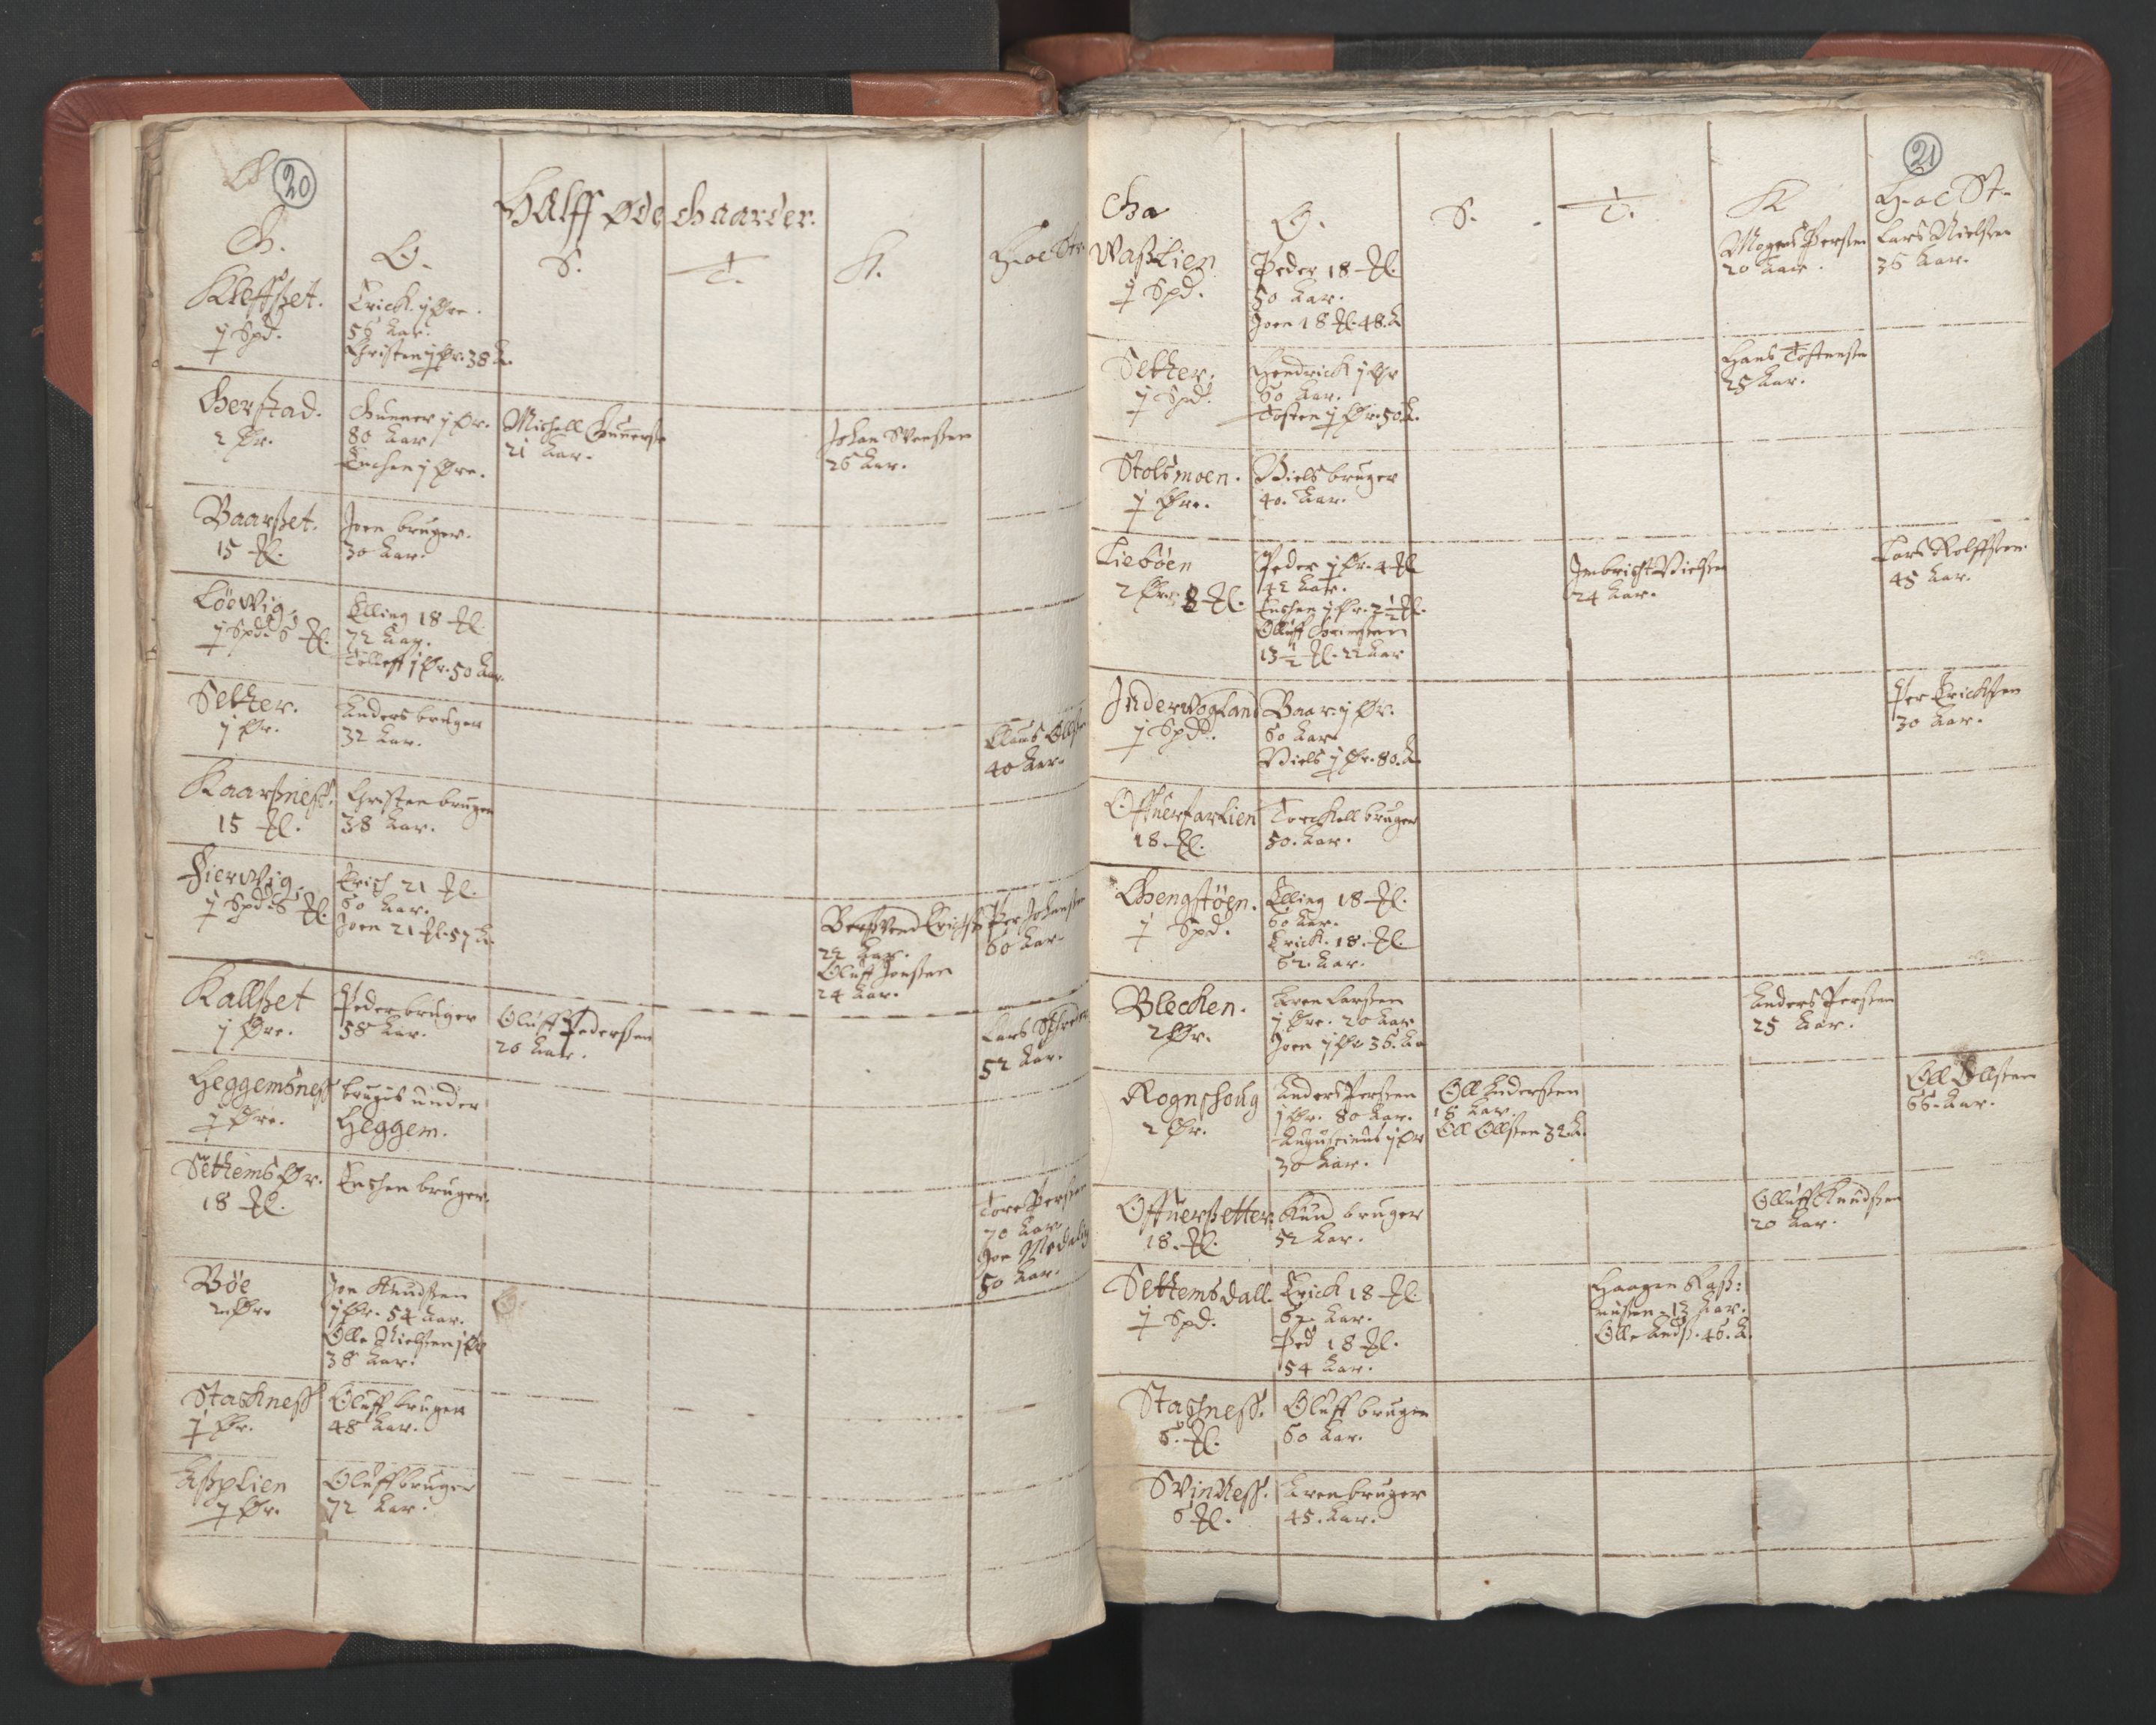 20
Halff Øde Gaarder.
G.
O.
S.
T.
K.
H. oc Str.
Kleffset.
j Spd.
Erick. j Øre.
56 Aar.
Christen j Ør. 38 A.
Gerstad.
2 Ør.
Gunner j Ør.
80 Aar
Enchen j Øre.
Michell Gunners.
21 Aar.
Johan Svensen
26 Aar.
Baarset.
15 Ml.
Joen bruger.
30 Aar.
Löevig.
j Spd. 6 Ml.
Elling 18 Ml.
72 Aar.
Tolleff j Ør. 50 Aar.
Setter.
j Ør.
Anders bruger
32 Aar.
Claus Olls
40 Aar.
Kaarsness.
15 Ml.
Christen bruger
38 Aar.
Fierwig.
j Spd. 6 Ml.
Erich 21 Ml.
60 Aar.
Joen 21 Ml. 57 A.
Berssvend Erichs
22 Aar.
Oluff Jonssen
24 Aar.
Per Johansen
60 Aar.
Kallset
j Øre.
Peder bruger
58 Aar.
Oluff Pederssen
26 Aar.
Lars Schreder
52 Aar.
Heggemsness
j Øre.
brugis under
Heggem.
Settems Ør.
18 Ml.
Enchen bruger.
Tore Perssen
70 Aar
Jon
50 Aar.
Böe
2 Øre
Jon Knudssen
j Ør. 54 Aar.
Olle Nielssen j Ør
38 Aar.
Stackness
j Ør.
Oluff bruger
48 Aar.
Assplien
j Ør.
Oluff bruger
72 Aar.
21
Ga
O.
S.
T.
K
H. oc St.
Wasslien
j Spd.
Peder 18 Ml.
50 Aar.
Joen 18 Ml. 48. A
Mogens Perssen
20 Aar.
Lars Nielssen
36 Aar.
Setter.
j Spd.
Hendrick j Ør
60 Aar.
Tosten j Ør. 50 A.
Hans Tostenssen
25 Aar.
Stolsmoen.
j Øre.
Niels bruger
40. Aar.
Lieböen
2 Ør. 8 Ml.
Peder j Ør. 4 Ml
42 Aar.
Enchen j Ør. 2½ Ml.
Olluff
13½ Ml. 22 Aar
Imbricht Nielssen
24 Aar.
Lars Rolffssen
45 Aar.
Inderwogland
j Spd.
Baar j Ør.
60 Aar
Niels j Ør. 80. A.
Per Erichssen
30 Aar.
Offuerfarlien
18. Ml.
Torckell bruger
50. Aar.
Gengstöen.
j Spd.
Elling 18 Ml.
60 Aar.
Erick. 18. Ml.
62. Aar.
Blecken.
2 Ør.
Aren Larssen
j Øre. 20 Aar
Joen j Ør 36. Aa
Anders Perssen
25 Aar.
Rognschoug
2 Ør.
Anders Perssen
j Ør. 80 Aar.
Augustinus j Ør
30 Aar.
Oll Anderssen
18 Aar.
Oll Ollssen 32 A.
Oll Ollssen
66. Aar.
Offuersetter.
18. Ml.
Knud bruger
52 Aar.
Olluff Knudssen
20 Aar.
Settemsdall
j Spd.
Erick 18 Ml.
62 Aar.
Ped 18 Ml.
54 Aar.
Haagen Rass:
mussen. 13 Aar.
Olle Ands. 46. A.
Stachness.
6. Ml.
Oluff bruger
60 Aar.
Svinness.
6 Ml.
Aren bruger
45. Aar.